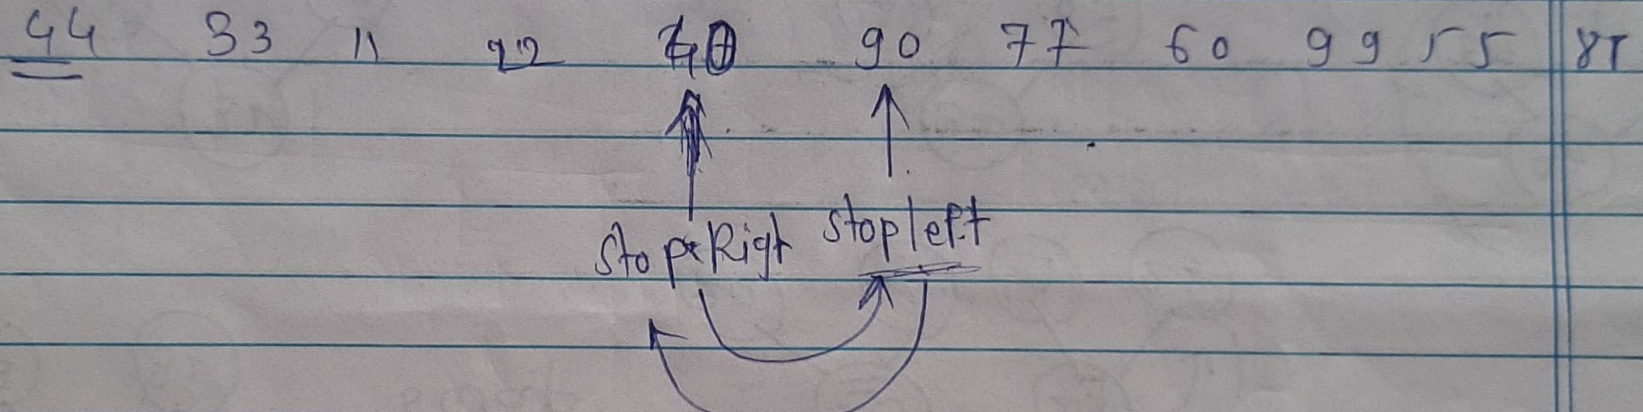 44 33 11 22 40 90 77 60 99 55
Stop Right Stop left